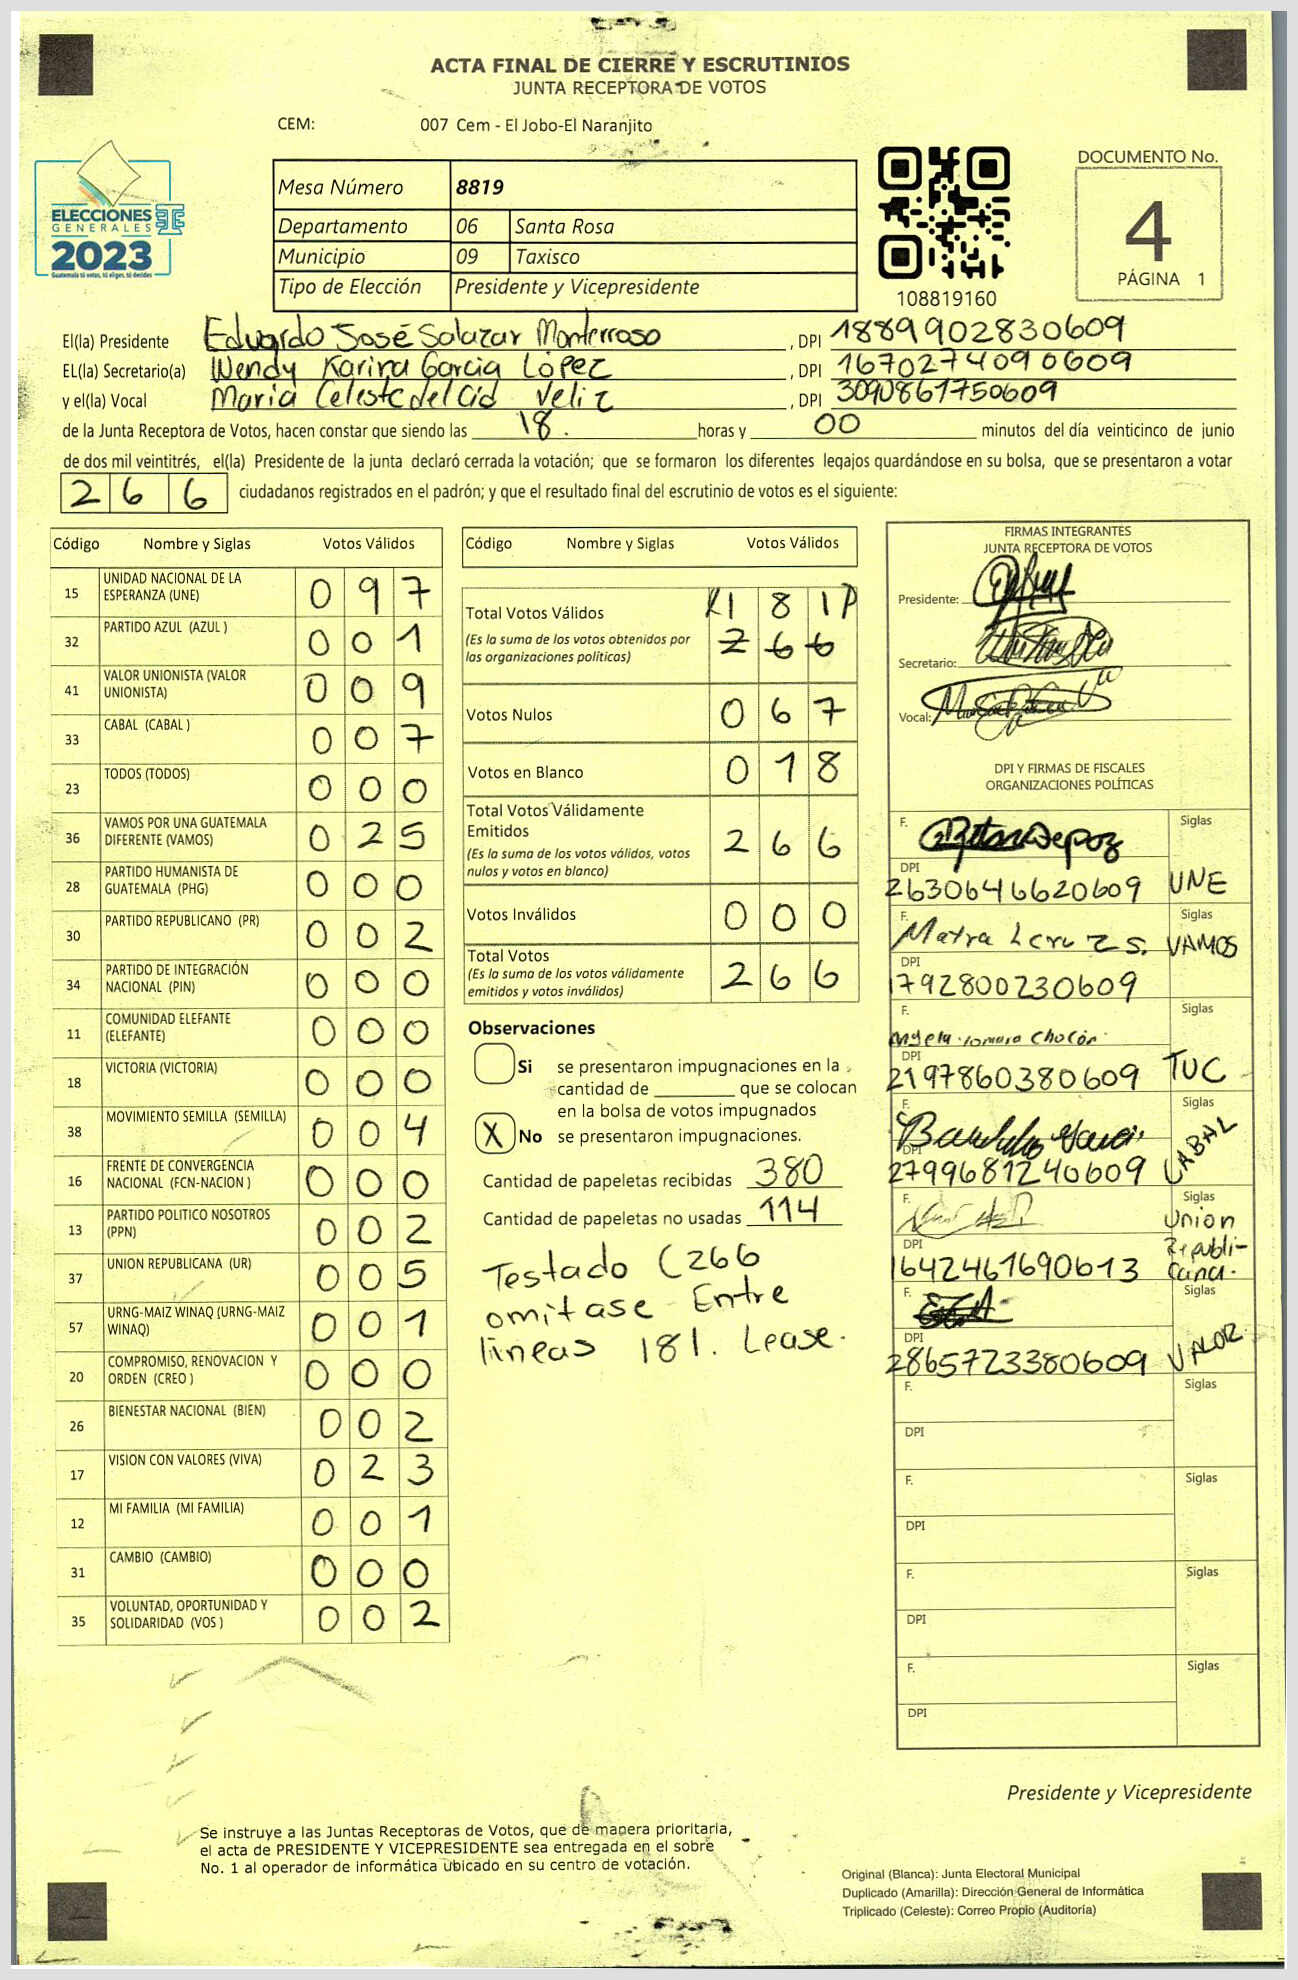 ACTA FINAL DE CIERRE Y ESCRUTINIOS
JUNTA RECEPTORA DE VOTOS
CEM: 007 Cem - El Jobo-El Naranjito
ELECCIONES
GENERALES
2023
Guatemala tú votas, tú eliges, tú decides
Mesa Número 8819
Departamento 06 Santa Rosa
Municipio 09 Taxisco
Tipo de Elección Presidente y Vicepresidente
108819160
DOCUMENTO No.
4
PÁGINA 1
El(la) Presidente Eduardo José Salazar Monterroso, DPI 1889902830609
EL(la) Secretario(a) Wendy Karina Garcia López, DPI 1670274090609
y el(la) Vocal Maria Celeste del Cid Veliz, DPI 3090861750609
de la Junta Receptora de Votos, hacen constar que siendo las 18. horas y 00 minutos del día veinticinco de junio
de dos mil veintitrés, el(la) Presidente de la junta declaró cerrada la votación; que se formaron los diferentes legajos guardándose en su bolsa, que se presentaron a votar
266 ciudadanos registrados en el padrón; y que el resultado final del escrutinio de votos es el siguiente:
Código Nombre y Siglas Votos Válidos
15 UNIDAD NACIONAL DE LA ESPERANZA (UNE) 097
32 PARTIDO AZUL (AZUL ) 001
41 VALOR UNIONISTA (VALOR UNIONISTA) 009
33 CABAL (CABAL ) 007
23 TODOS (TODOS) 000
36 VAMOS POR UNA GUATEMALA DIFERENTE (VAMOS) 025
28 PARTIDO HUMANISTA DE GUATEMALA (PHG) 000
30 PARTIDO REPUBLICANO (PR) 002
34 PARTIDO DE INTEGRACIÓN NACIONAL (PIN) 000
11 COMUNIDAD ELEFANTE (ELEFANTE) 000
18 VICTORIA (VICTORIA) 000
38 MOVIMIENTO SEMILLA (SEMILLA) 004
16 FRENTE DE CONVERGENCIA NACIONAL (FCN-NACION ) 000
13 PARTIDO POLITICO NOSOTROS (PPN) 002
37 UNION REPUBLICANA (UR) 005
57 URNG-MAIZ WINAQ (URNG-MAIZ WINAQ) 001
20 COMPROMISO, RENOVACION Y ORDEN (CREO ) 000
26 BIENESTAR NACIONAL (BIEN) 002
17 VISION CON VALORES (VIVA) 023
12 MI FAMILIA (MI FAMILIA) 001
31 CAMBIO (CAMBIO) 000
35 VOLUNTAD, OPORTUNIDAD Y SOLIDARIDAD (VOS ) 002
Código Nombre y Siglas Votos Válidos
Total Votos Válidos 181
(Es la suma de los votos obtenidos por las organizaciones políticas) 266
Votos Nulos 067
Votos en Blanco 018
Total Votos Válidamente Emitidos 266
(Es la suma de los votos válidos, votos nulos y votos en blanco)
Votos Inválidos 000
Total Votos 266
(Es la suma de los votos válidamente emitidos y votos inválidos)
Observaciones
Si se presentaron impugnaciones en la
cantidad de ________ que se colocan
en la bolsa de votos impugnados
X No se presentaron impugnaciones.
Cantidad de papeletas recibidas 380
Cantidad de papeletas no usadas 114
Testado (266
omitase Entre
lineas 181. Lease.
FIRMAS INTEGRANTES
JUNTA RECEPTORA DE VOTOS
Presidente:
Secretario:
Vocal:
DPI Y FIRMAS DE FISCALES
ORGANIZACIONES POLÍTICAS
F. Siglas
DPI
2630646620609 UNE
F. Siglas
VAMOS
DPI
1792800230609
F.
DPI
2197860380609 TUC
F. Siglas
DPI
2799681240609 CABAL
F. Siglas
Union
DPI Republi-
1642461690613 cana.
F. Siglas
DPI
2865723380609 VALOR
F. Siglas
DPI
F. Siglas
DPI
F. Siglas
DPI
F. Siglas
DPI
Presidente y Vicepresidente
Se instruye a las Juntas Receptoras de Votos, que de manera prioritaria,
el acta de PRESIDENTE Y VICEPRESIDENTE sea entregada en el sobre
No. 1 al operador de informática ubicado en su centro de votación.
Original (Blanca): Junta Electoral Municipal
Duplicado (Amarilla): Dirección General de Informática
Triplicado (Celeste): Correo Propio (Auditoría)